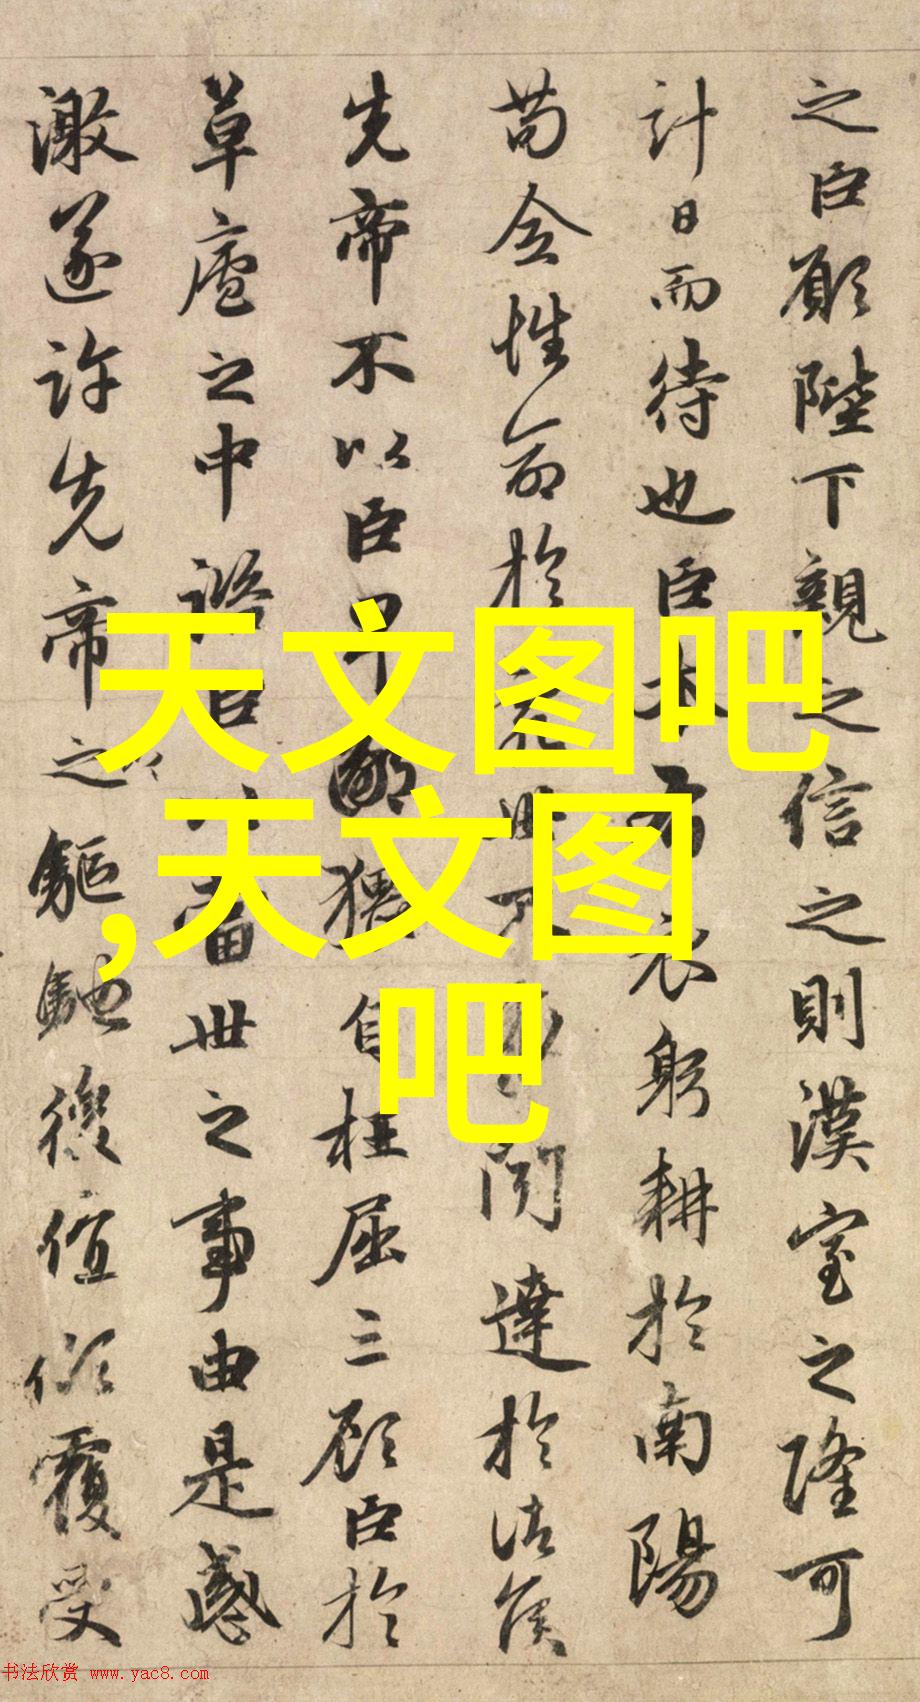 之臣願陛下親之信之則漢室之隆可
計日而待也臣本布衣躬耕於南陽
苟全性命於亂世不求聞達於諸侯
先帝不以臣卑鄙猥自枉屈三顧臣於
草廬之中諮臣以當世之事由是感
激遂許先帝之驅馳後值傾覆受
天文图吧
,天文图
吧
书法欣赏 www.yac8.com